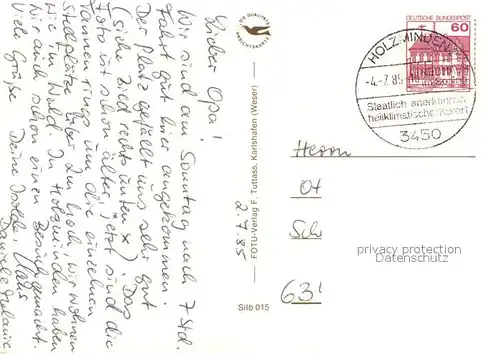 Lieber Opa!
Wir sind am Sonntag nach 7 Std.
Fahrt gut hier angekommen.
Der Platz gefällt uns sehr gut
(siehe Bild rechts unten x). Das
Foto ist schon älter, jetzt sind die
Tannen rings um die einzelnen
Stellplätze hoch, wir wohnen
wie im Wald. In Holzminden haben
wir auch schon einen Besuch gemacht.
Viele Grüße Deine Isolde, Hans
Daniela Melanie
2.7.85
DIE QUALITÄTS
ANSICHTSKARTE
FOTU-Verlag F. Tuttass, Karlshafen (Weser)
Silb 015
DEUTSCHE BUNDESPOST
60
HOLZMINDEN
-4.-7.85
Staatlich anerkannter
heilklimatischer Kurort
3450
Herrn
Ot
Sch
63
privacy protection